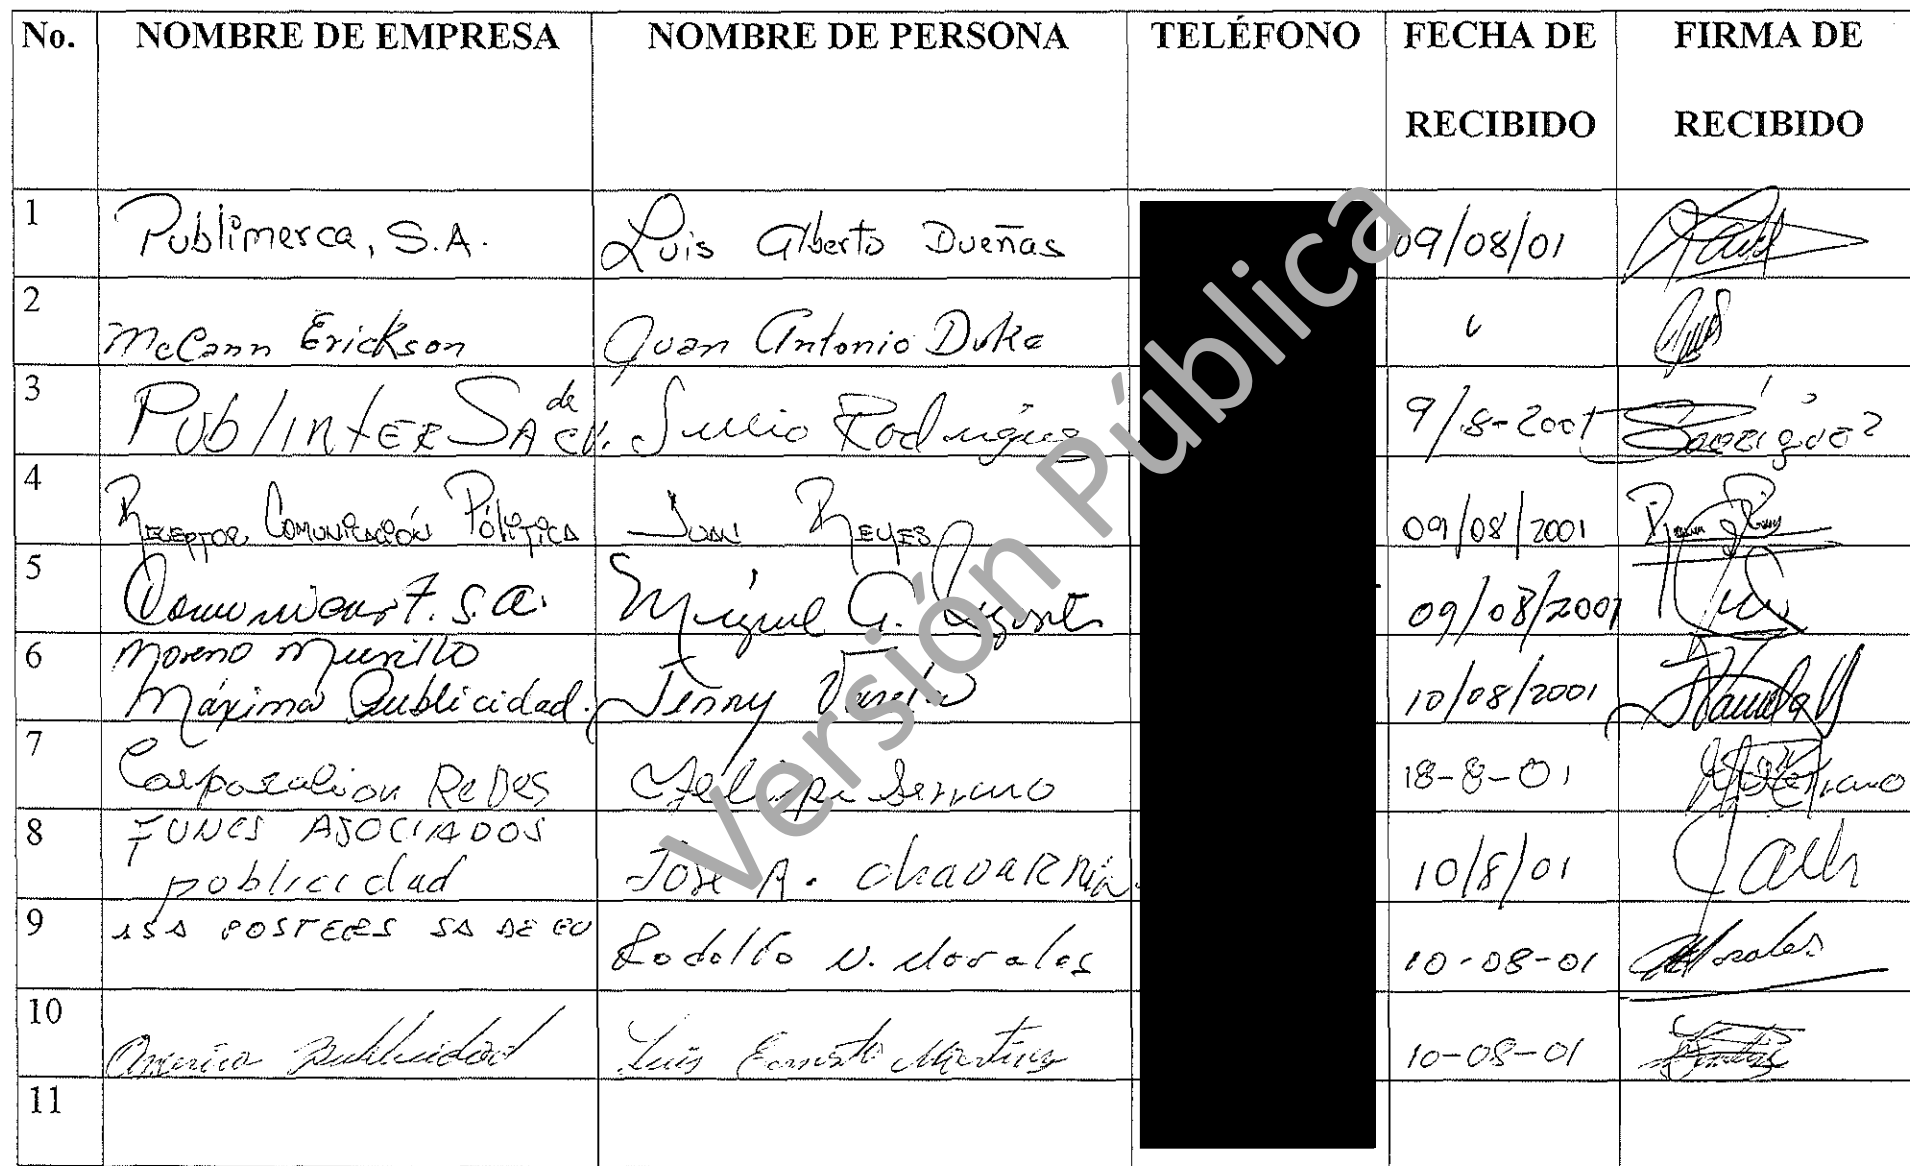 No. NOMBRE DE EMPRESA NOMBRE DE PERSONA TELÉFONO FECHA DE RECIBIDO FIRMA DE RECIBIDO
1 Publimerca, S.A. Luis Alberto Dueñas 09/08/01
2 McCann Erickson Juan Antonio Duke
3 Publinter SA de CV. Julio Rodríguez 9/8-2001
4 Receptor Comunicación Política Juan Reyes 09/08/2001
5 S.A. Miguel A. 09/08/2001
6 Moreno Murillo
Máxima Publicidad. Jenny Varela 10/08/2001
7 Corporalion ReDes Felipe Serrano 18-8-01
8 FUNES ASOCIADOS
publicidad José A. Chavarría 10/8/01
9 ISA POSTERS SA DE CV Rodolfo N. Morales 10-08-01 Morales
10 America Publicidad Luis Ernesto Martinez 10-08-01
11
Versión Pública